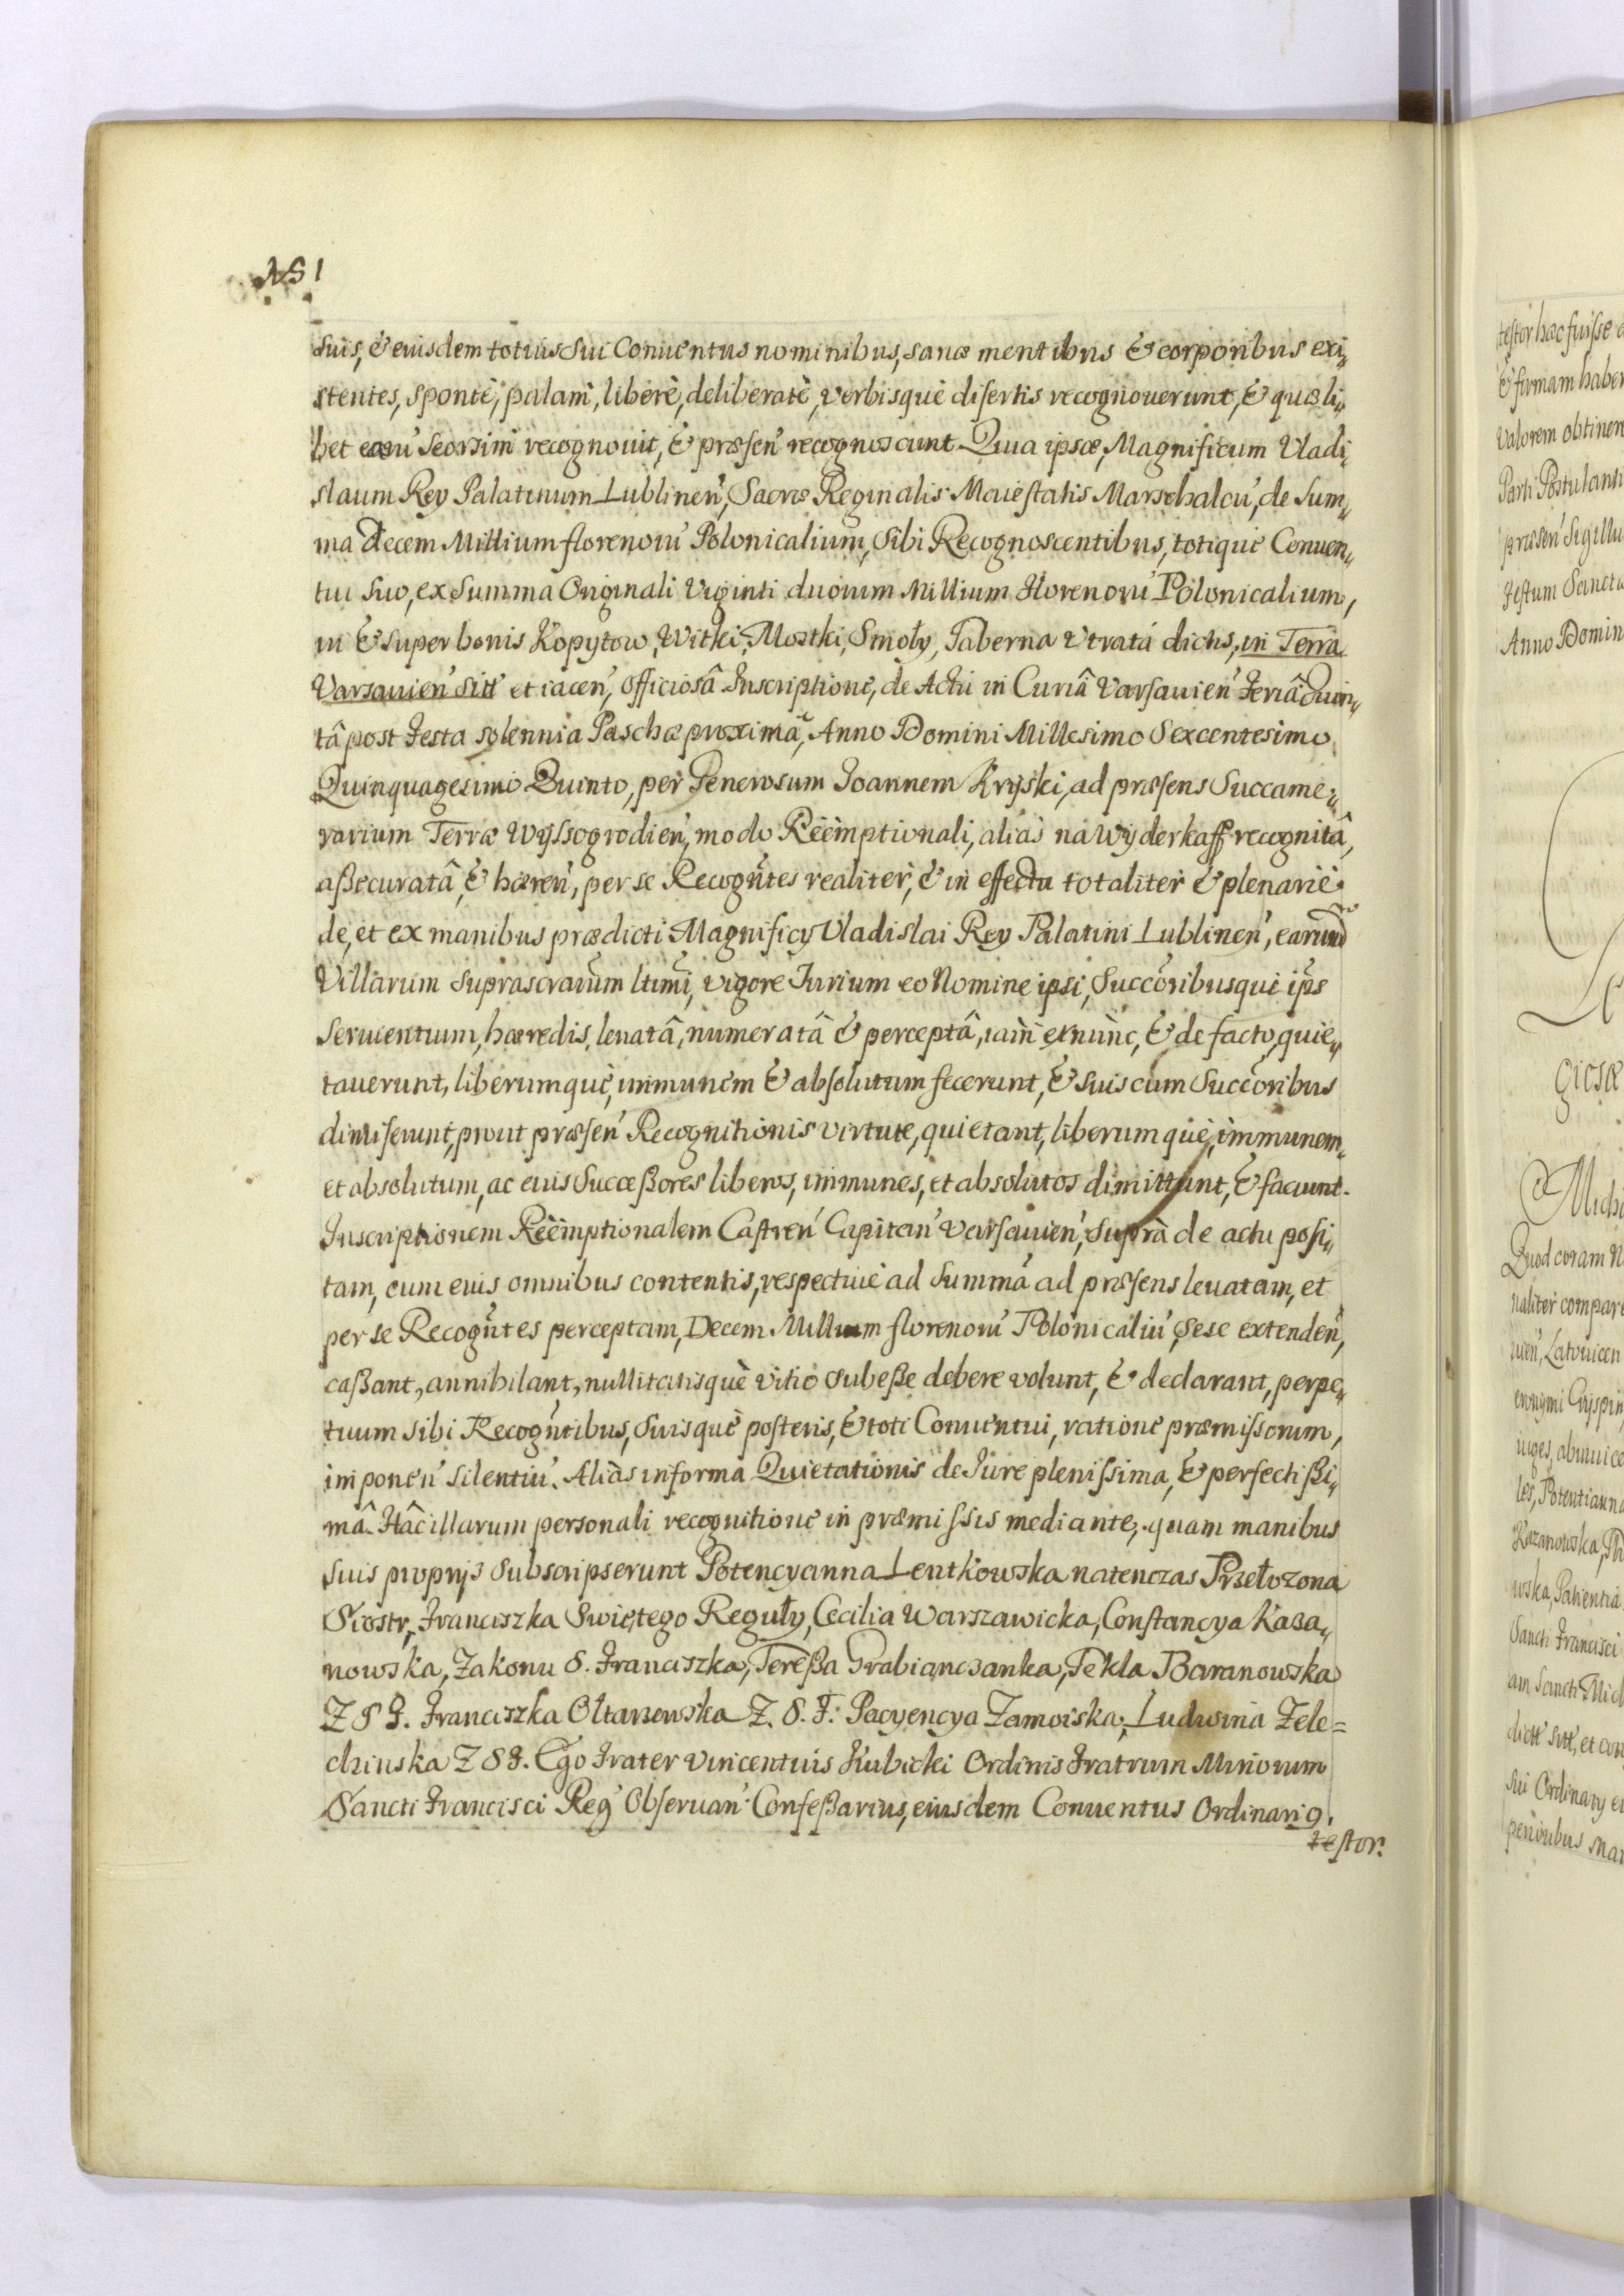 suis, & eiusdem totius sui Conuentus nominibus, sanæ mentibus & corporibus exi„
stentes, spontè, palam, liberè, deliberatè, verbisquè disertis recognouerunt, & quæli„
bet earũ seorsim recognouit, & præsen̄ recognoscunt. Quia ipsæ, Magnificum Vladi„
slaum Rey Palatinum Lublinen̄, Sacræ Reginalis Maiestatis Marschalcũ, de Sum„
ma Decem Millium florenorũ Polonicalium, sibi Recognoscentibus, totique Conuen„
tui suo, ex Summa Originali Viginti duorum Millium Florenorũ Polonicalium,
in & super bonis Kopytow, Witki, Mostki, Smoły, Taberna Vtrata dictis, in Terra
Varsauien̄ sitt̄ et iacen̄, officiosâ Inscriptione, de Actu in Curiâ Varsauien̄ Feriâ Quin„
tâ post Festa solennia Paschæ proximâ, Anno Domini Millesimo Sexcentesimo
Quinquagesimo Quinto, per Generosum Joannem Kryski, ad præsens Succame„
rarium Terræ Wyssogrodien̄, modo Reèmptionali, aliàs na Wyderkaff recognitâ,
aßecuratâ, & hæren̄, per se Recogñtes realiter, & in effectu totaliter & plenariè
de, et ex manibus prædicti Magnificy Vladislai Rey Palatini Lublinen̄, earund
Villarum suprascrarũm ltimi, vigore Jurium eo Nomine ipsi, Succõribusque ips̃
seruientium, hæredis, leuatâ, numeratâ & perceptâ, iam ex nunc, & de facto, quie„
tauerunt, liberumquè, immunem & absolutum fecerunt, & suis cum Succõribus
dimiserunt, prout præsen̄ Recognitionis virtute, quietant, liberumquè, immunem„
et absolutum, ac eius Succeßores liberos, immunes, et absolutos dimittunt, & faciunt.
Inscriptionem Reèmptionalem Castren̄ Capitan̄ Varsauien̄, suprà de actu posi„
tam, cum eius omnibus contentis, respectiuè ad Summã ad præsens leuatam, et
per se Recogñtes perceptam, Decem Millium florenorũ Polonicaliũ, sese extenden̄,
caßant, annihilant, nullitatisquè vitio subeße debere volunt, & declarant, perpe„
tuum sibi Recogñtibus, suisquè posteris, & toti Conuentui, ratione præmissorum,
imponen̄ silentiũ. Aliàs in forma Quietationis de Jure plenissima, & perfectißi„
mâ. Hâc illarum personali recognitione in præmissis mediante, quam manibus
suis proprijs subscripserunt Potencyanna Lentkowska natenczas Przełozona
Siostr, Franciszka Swiętego Reguły, Cecilia Warszawicka, Constancya Kaza„
nowska, Zakonu S. Franciszka, Tereßa Grabianczanka, Tekla Baranowska
Z S F. Franciszka Ołtarzewska Z. S. F: Pacyencya Zamoiska, Ludwina Zele=
chinska Z S F. Ego Frater Vincentius Kubicki Ordinis Fratrum Minorum
Sancti Francisci Reg̃ Obseruan̄ Confeßarius, eiusdem Conuentus Ordinariꝯ.
testor.